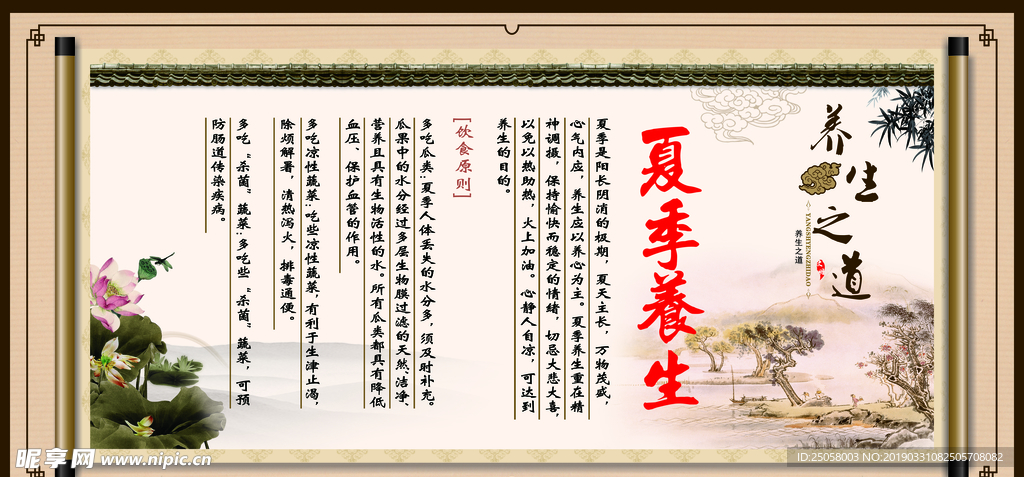 养生之道
YANGSHYENGZHIDAO
养生之道
夏季養生
夏季是阳长阴消的极期，夏天主长，万物茂盛，
心气内应，养生应以养心为主。夏季养生重在精
神调摄，保持愉快而稳定的情绪，切忌大悲大喜，
以免以热助热，火上加油。心静人自凉，可达到
养生的目的。
[饮食原则]
多吃瓜类：夏季人体丢失的水分多，须及时补充。
瓜果中的水分经过多层生物膜过滤的天然、洁净、
营养且具有生物活性的水。所有瓜类都具有降低
血压、保护血管的作用。
多吃凉性蔬菜：吃些凉性蔬菜，有利于生津止渴，
除烦解暑，清热泻火，排毒通便。
多吃“杀菌”蔬菜：多吃些“杀菌”蔬菜，可预
防肠道传染疾病。
昵享网 www.nipic.cn
ID:25058003 NO:20190331082505708082